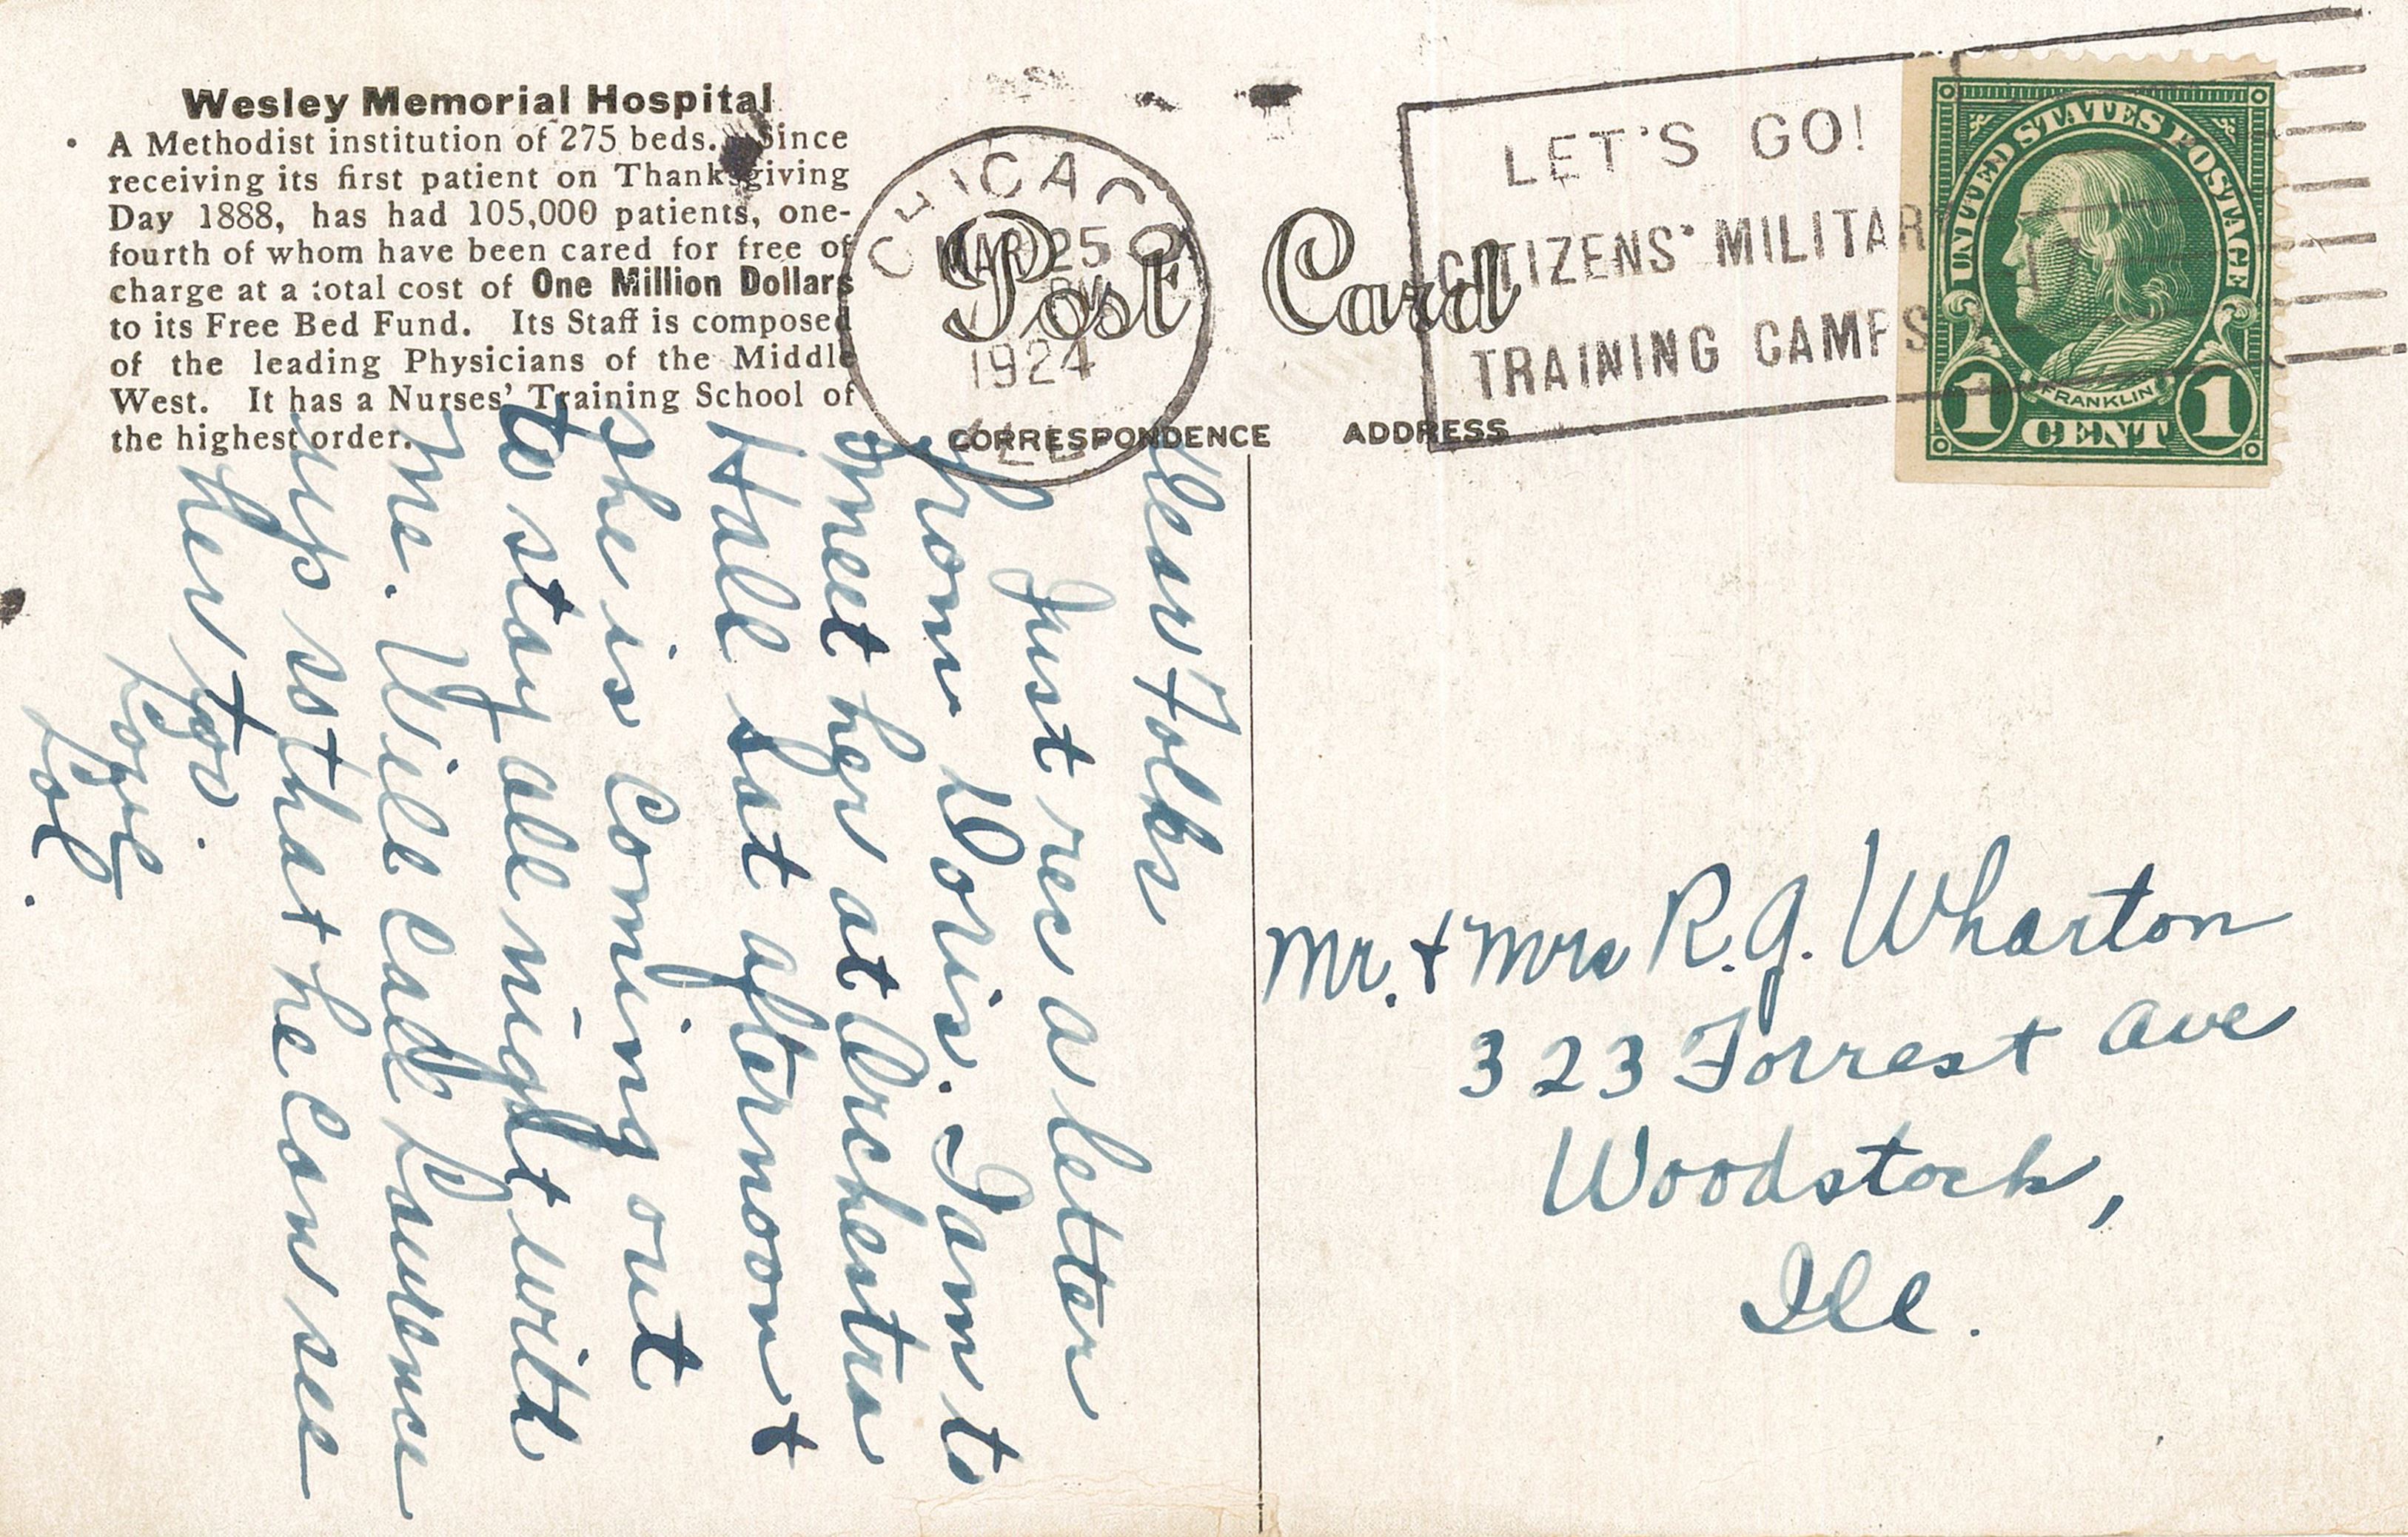 Wesley Memorial Hospital
A Methodist institution of 275 beds. Since
receiving its first patient on Thanksgiving
Day 1888, has had 105,000 patients, one-
fourth of whom have been cared for free of
charge at a total cost of One Million Dollars
to its Free Bed Fund. Its Staff is composed
of the leading Physicians of the Middle
West. It has a Nurses' Training School of
the highest order.
CHICAGO
MAR 25
PM
1924
ILL
Post Card
LET'S GO!
CITIZENS' MILITARY
TRAINING CAMPS
UNITED STATES POSTAGE
FRANKLIN
1 CENT 1
CORRESPONDENCE
ADDRESS
Dear Folks
Just rec a letter
from Doris. I am to
meet her at Orchestra
Hall Sat afternoon +
she is coming out
to stay all night with
me. Will call Laurence
up so that he can see
her too.
Love
Lol.
Mr. + Mrs R.J. Wharton
323 Forrest Ave
Woodstock,
Ill.